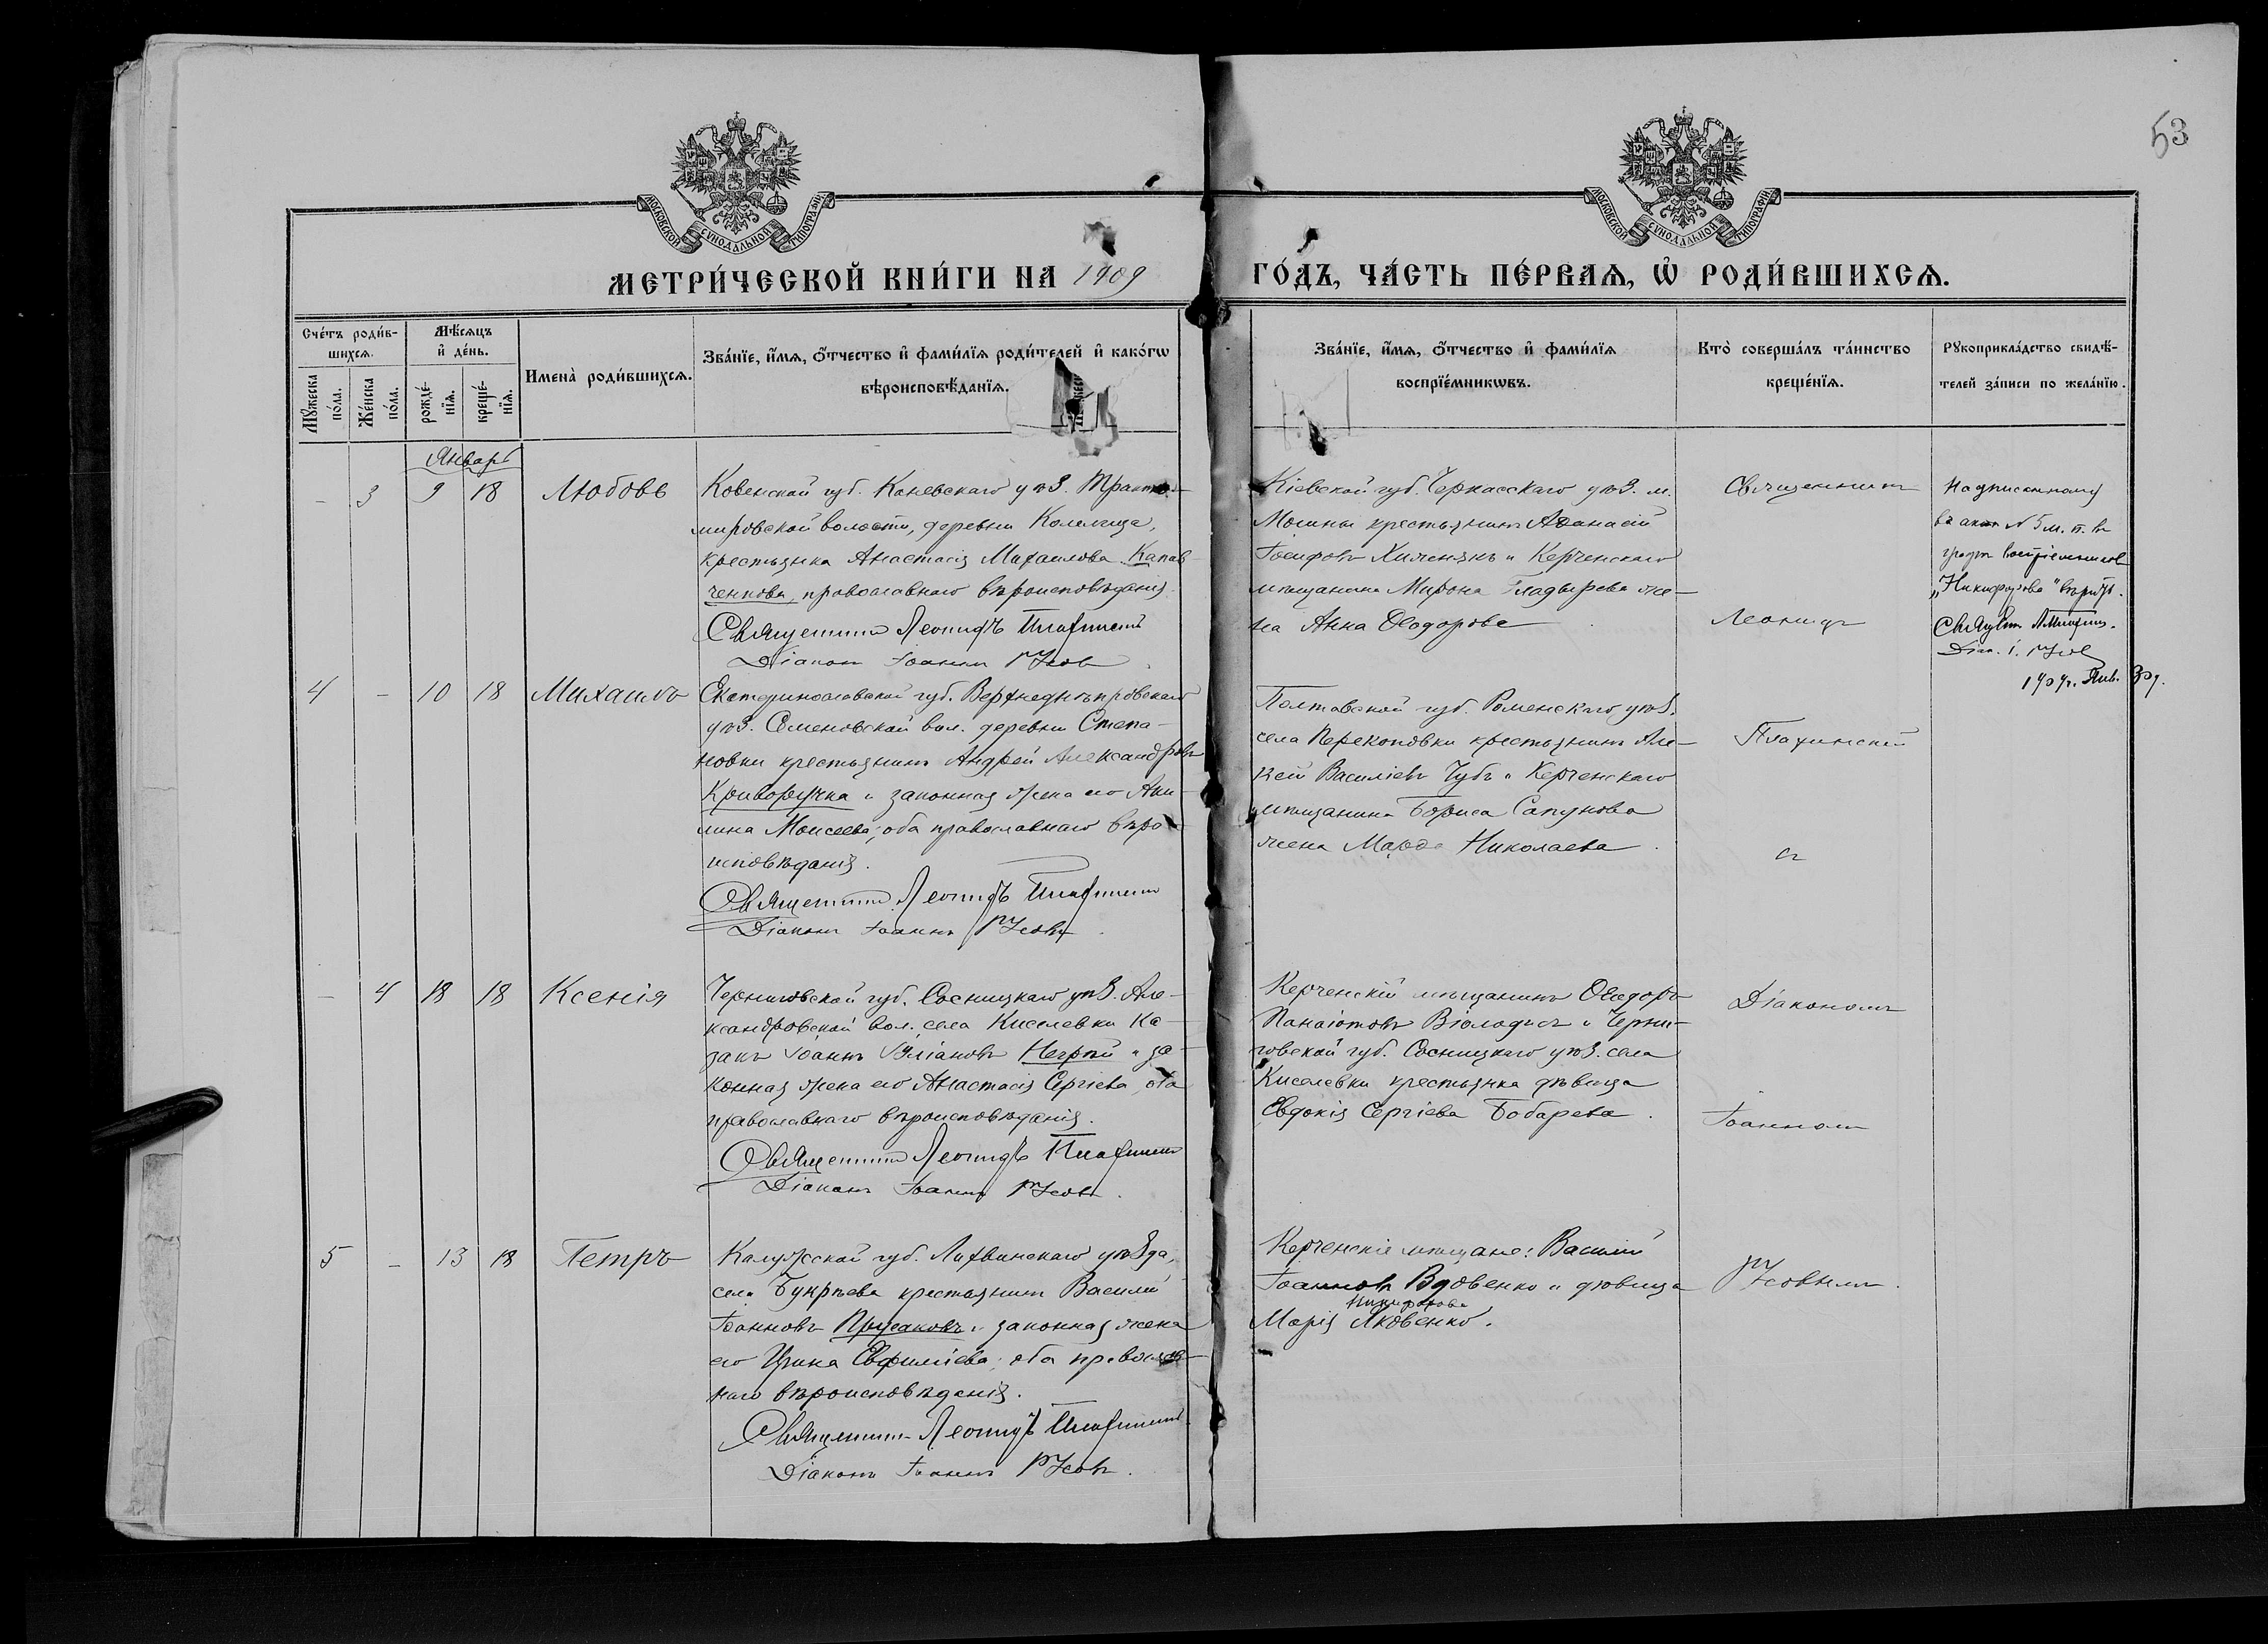 53
МОСКОВСКОЙ СУНОДАЛЬНОЙ ТИПОГРАФІИ
МОСКОВСКОЙ СУНОДАЛЬНОЙ ТИПОГРАФІИ
МЕТРИ́ЧЕСКОЙ КНИ́ГИ НА 1909 ГО́ДЪ, ЧА́СТЬ ПЕ́РВАѦ, Ѡ҆ РОДИ́ВШИХСѦ.
Сче́тъ роди́в-
шихсѧ.
Мꙋжеска по́ла.
Же́нска по́ла.
Мѣ́сѧцъ
и҆ де́нь.
рожде́-
нїѧ.
креще́-
нїѧ.
Имена̀ роди́вшихсѧ.
Зва́нїе, и҆́мѧ, ѻ҆́тчество и҆ фами́лїѧ роди́телей и҆ како́гѡ
вѣроисповѣ́данїѧ.
Зва́нїе, и҆́мѧ, ѻ҆́тчество и҆ фами́лїѧ
воспрїе́мникѡвъ.
Кто̀ соверша́лъ та́инство
креще́нїѧ.
Рꙋкоприкла́дство свидѣ́-
телей за́писи по жела́нїю.
Январь
- 3 9 18 Любовь
Ковенской губ. Каневскаго уѣз. Тракто-
мировской волости, деревни
крестьянка Анастасія Михаилова Капав-
ченкова, православнаго вѣроисповѣданія.
Священникъ Леонидъ Плахинскій
Діаконъ Іоаннъ Усовъ
Кіевской губ. Черкасскаго уѣз. м.
Мошны крестьянинъ Аѳанасій
Іосифовъ и Керченскаго
мѣщанина Мирона Гладырева же-
на Анна Ѳеодорова
Священникъ
Леонидъ
Надписанному
въ актѣ № 5 м. п. въ
графѣ воспріемниковъ
„Никифорова" вѣрить.
Свящ. Л. Плахин.
Діак. І. Усовъ
1909 г. Янв. 30 д.
4 - 10 18 Михаилъ
Екатеринославской губ. Верхнеднѣпровскаго
уѣз. Семеновской вол. деревни Степа-
новки крестьянинъ Андрей Александровъ
Криворучка и законная жена его Аки-
лина Моисеева; оба православнаго вѣро-
исповѣданія.
Священникъ Леонидъ Плахинскій
Діаконъ Іоаннъ Усовъ.
Полтавской губ. Роменскаго уѣз.
села Перекоповки крестьянинъ Але-
ксій Василіевъ Чубъ и Керченскаго
мѣщанина Бориса Сапунова
жена Марѳа Николаева.
Плахинскій
съ
- 4 18 18 Ксенія
Черниговской губ. Сосницкаго уѣз. Але-
ксандровской вол. села Киселевки ка-
закъ Іоаннъ Уліановъ Негрѣй и за-
конная жена его Анастасія Сергіева, оба
православнаго вѣроисповѣданія.
Священникъ Леонидъ Плахинскій
Діаконъ Іоаннъ Усовъ.
Керченскій мѣщанинъ Ѳеодоръ
Панаіотовъ и Черни-
говской губ. Сосницкаго уѣз. села
Киселевки крестьянка дѣвица
Евдокія Сергіева Бобарева.
Діакономъ
Іоанномъ
5 - 13 18 Петръ
Калужской губ. Лихвинскаго уѣзда,
села крестьянинъ Василій
Іоанновъ Прусаковъ и законная жена
его Ирина Евфиміева; оба православ-
наго вѣроисповѣданія.
Священникъ Леонидъ Плахинскій
Діаконъ Іоаннъ Усовъ.
Керченскіе мѣщане: Василій
Іоанновъ Вдовенко и дѣвица
Никифорова
Марія Яковенко.
Усовымъ.